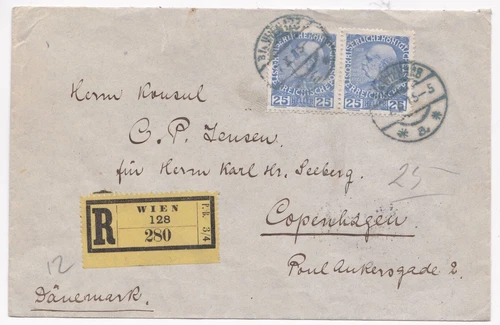 25 25
25 25
Herrn Konsul
C. P. Jensen
für Herrn Karl Hr. Seeberg.
25
Copenhagen.
Poul Ankersgade 2.
R
WIEN
128
280
P.B. 3/4
12
Dänemark.